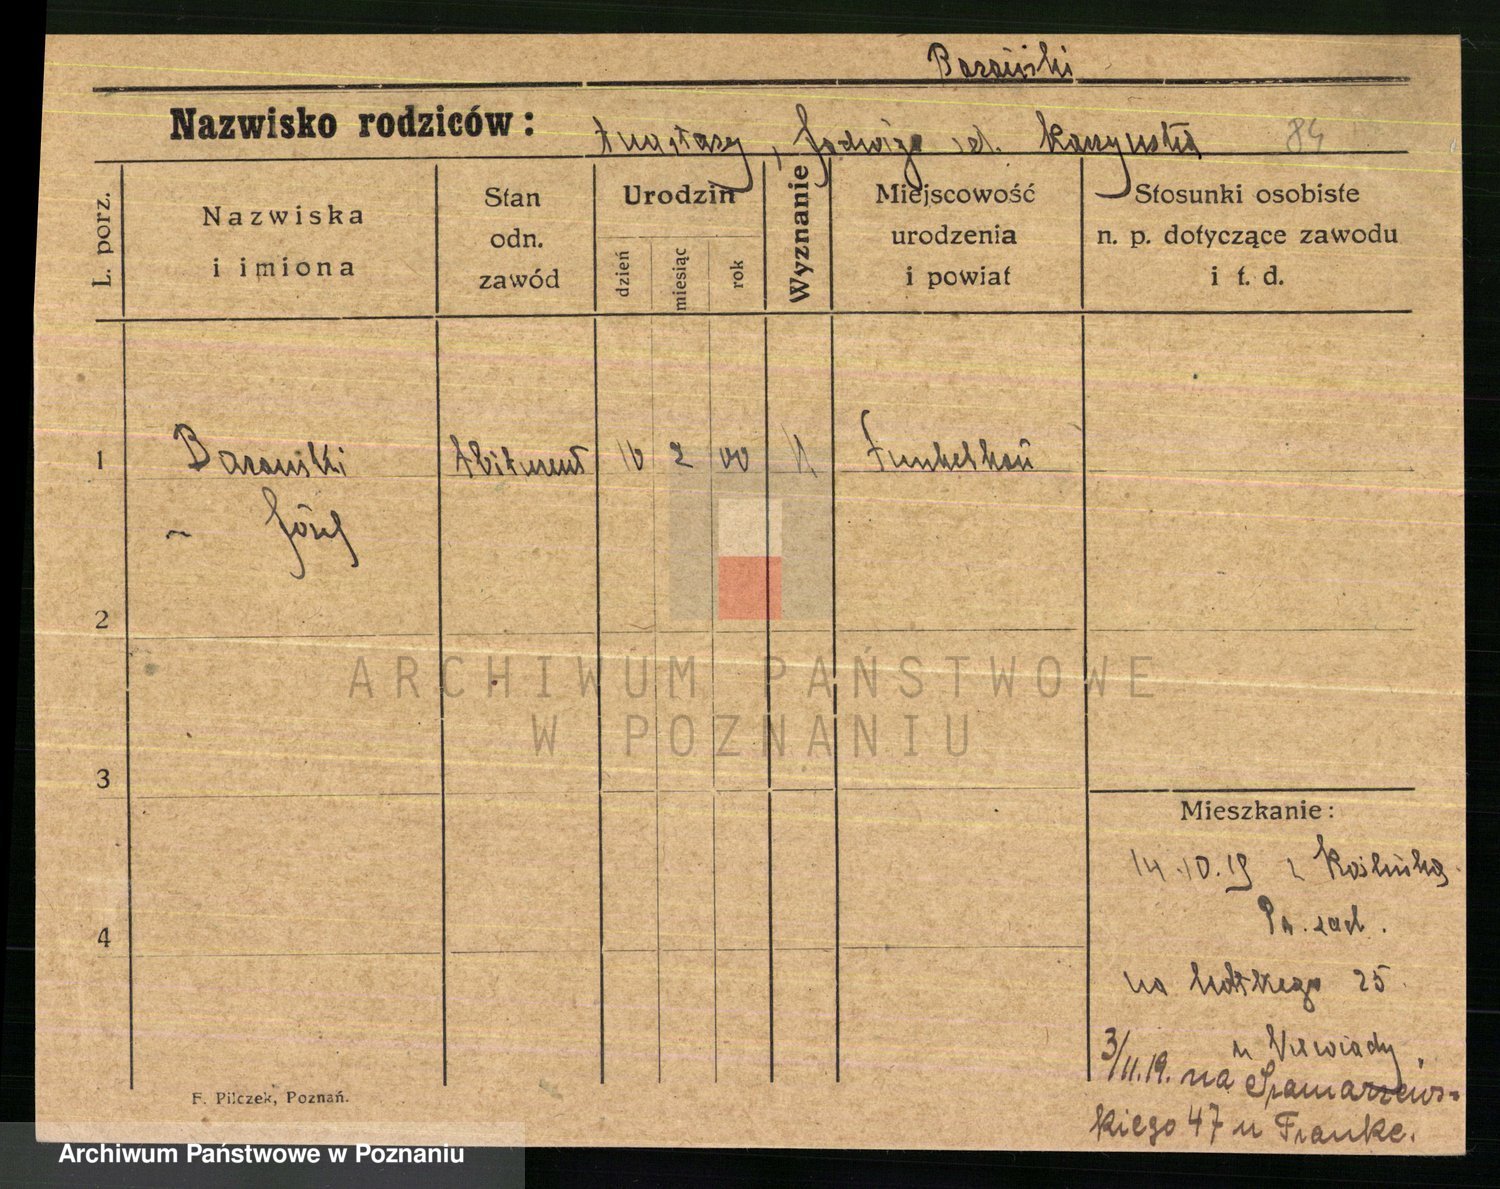 Barański
Nazwisko rodziców: Anastazy, Jadwiga 84
L. porz.
Nazwiska
i imiona
Stan
odn.
zawód
Urodzin
dzień
miesiąc
rok
Wyznanie
Miejscowość
urodzenia
i powiat
Stosunki osobiste
n. p. dotyczące zawodu
i t. d.
1 Barański Abiturient 10 2 00
~ Józef
2
3
4
Mieszkanie:
14.10.19 z
na 25
u
3/11.19. na Szamarzews-
kiego 47 u Franke.
F. Pilczek, Poznań.
ARCHIWUM PAŃSTWOWE
W POZNANIU
Archiwum Państwowe w Poznaniu